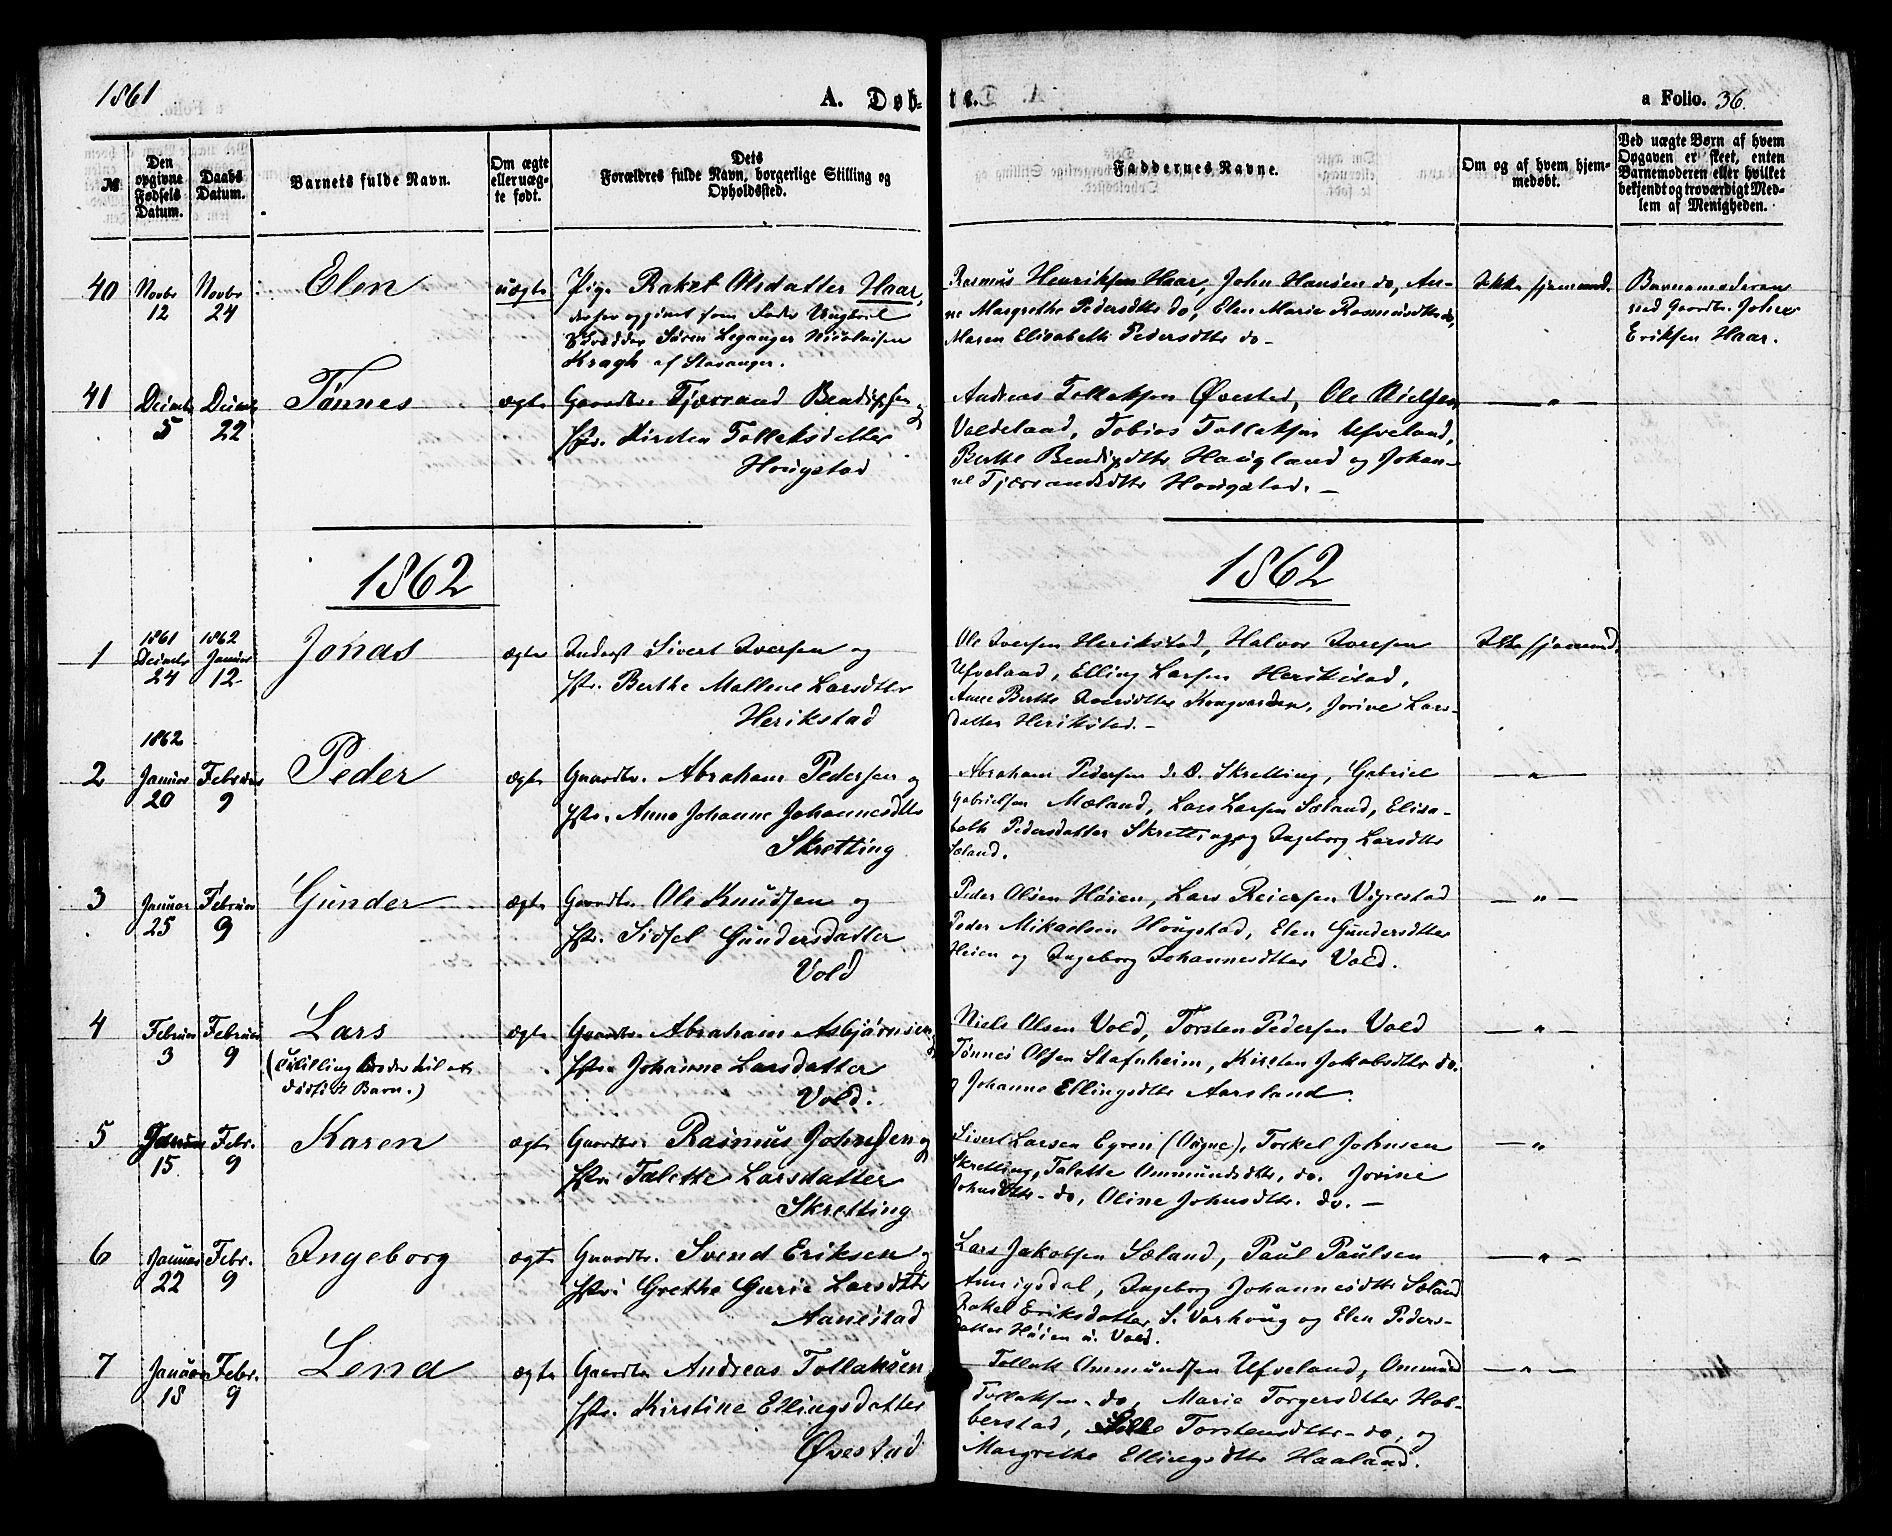 1861
A. Døb-
te.
a Folio. 36.
№
Den
opgivne
Fødsels
Datum.
Daabs
Datum.
Barnets fulde Navn.
Om ægte
eller uæg-
te født.
Dets
Forældres fulde Navn, borgerlige Stilling og
Opholdssted.
Faddernes Navne.
Om og af hvem hjem-
medøbt.
Ved uægte Børn af hvem
Opgaven er skeet, enten
Barnemoderen eller hvilket
bekjendt og troværdigt Med-
lem af Menigheden.
40 Novbr 12 Novbr 24 Elen uægte
Pige Rakel Olsdatter Haar,
derfor opgivet som Fader Ungkarl
Søren Leganger Nicolaisen
Kragh af Stavanger.
Rasmus Henriksen Haar, John Hansen do, An-
ne Margrethe Pedersdtter do, Elen Marie Rasmusdtter do,
Maren Elisabeth Pedersdtter do-
Ikke hjemmed.
Barnemoderen
ved Gaardbr. John
Eriksen Haar.
41 Decmbr 5 Decmbr 22 Tønnes ægte
Gaardbr. Tjærrand Bendixsen og
Hstr. Kirsten Tollaksdatter
Hougstad
Andreas Tollaksen Øvestad, Ole Nielsen
Valdeland, Tobias Tollaksen Ufveland,
Berthe Bendixdtter Haugland og Johan-
ne Tjærrandsdtter Hougstad. -
— " —
1862
1862
1 1861 Decmbr 24 1862 Januar 12 Jonas ægte
Inderst Sivert Iversen og
Hstr. Berthe Mallene Larsdtter
Herikstad
Ole Iversen Herikstad, Halvor Iversen
Ufveland, Elling Larsen Herikstad,
Anne Berthe Kongvarden, Jorine Lars-
datter Herikstad. -
Ikke hjemmed.
1862
2 Januar 20 Februar 9 Peder ægte
Gaardbr. Abraham Pedersen og
Hstr. Anne Johanne Johannesdtter
Skretting
Abraham Pedersen d. Æ. Skretting, Gabriel
Gabrielsen Mæland, Lars Larsen Sæland, Elisa-
beth Pedersdatter Skretting og Ingeborg Larsdtter
Sæland.
— " —
3 Januar 25 Februar 9 Gunder ægte
Gaardbr. Ole Knudsen og
Hstr. Sidsel Gundersdatter
Vold
Peder Olsen Høien, Lars Reiersen Vigrestad
Peder Mikaelsen Hougstad, Elen Gundersdtter
Høien og Ingeborg Johannesdtter Vold.
— " —
4 Februar 3 Februar 9 Lars ægte
(Tvilling Broder til et
dødfødt Barn.)
Gaardbr. Abraham Asbjørnsen og
Hstr. Johanne Larsdatter
Vold.
Niels Olsen Vold, Torsten Pedersen Vold
Tønnes Olsen Stafnheim, Kirsten Jakobsdtter do.
og Johanne Ellingsdtter Aarsland.
— " —
5 Januar 15 Febr. 9 Karen ægte
Gaardbr. Rasmus Johnsen og
Hstr. Talette Larsdatter
Skretting
Sivert Larsen (Ogne), Torkel Johnsen
Skretting, Talette Ommundsdtter, do. Jorine
Johnsdtter- do, Oline Johnsdtter. do. -
— "
6 Januar 22 Febr. 9 Ingeborg ægte
Gaardbr. Svend Eriksen og
Hstr. Grethe Gurie Larsdtter
Aanestad
Lars Jakobsen Sæland, Paul Paulsen
Ingeborg Johannesdtter Sæland
Rakel Eriksdatter S. Varhoug og Elen Peders-
datter Høien u. Vold.
— " —
7 Januar 18 Febr. 9 Lena ægte
Gaardbr. Andreas Tollaksen
Hstr. Kirstine Ellingsdatter
Øvestad
Tollak Ommundsen Ufveland, Ommund
Tollaksen- do, Marie Torgersdtter Hob-
berstad, Sille Torstensdtter- do, og
Margrethe Ellingsdtter Haaland.
— " —